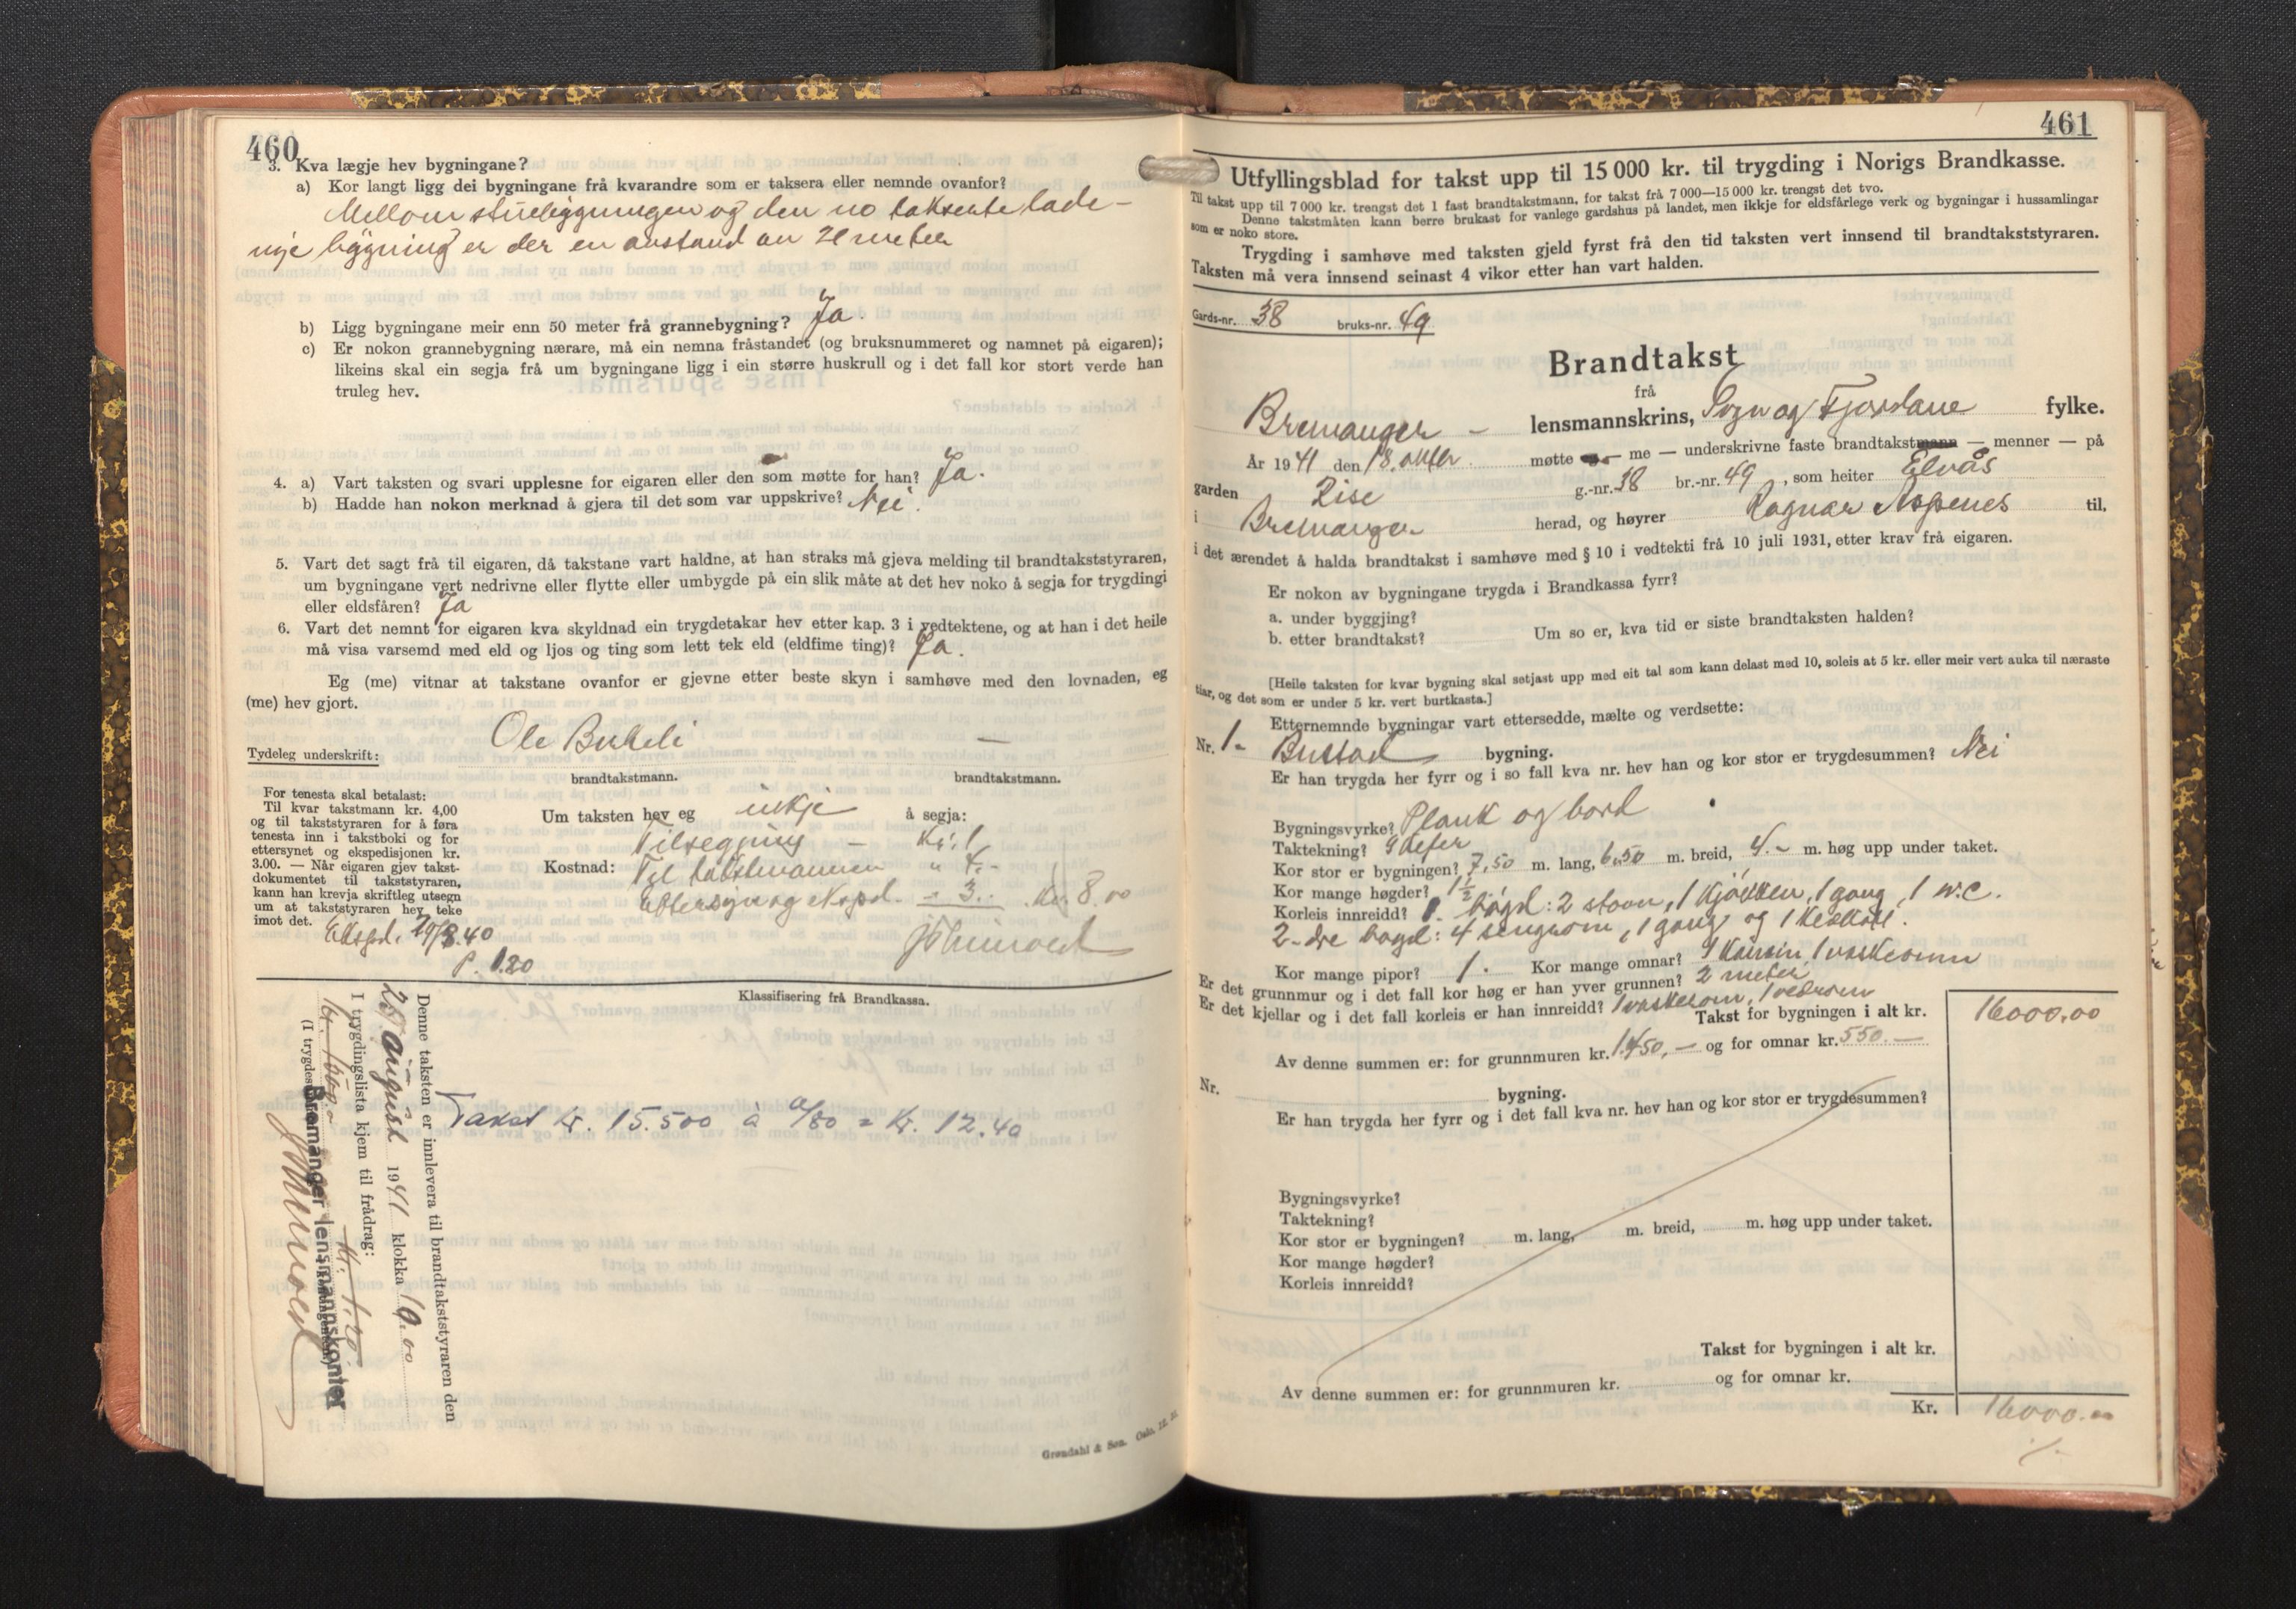 460
3. Kva lægje hev bygningane?
a) Kor langt ligg dei bygningane frå kvarandre som er taksera eller nemnde ovanfor?
Mellom stuebygningen og den no takserte lade-
nye bygning er der en avstand av 21 meter
b) Ligg bygningane meir enn 50 meter frå grannebygning? Ja.
c) Er nokon grannebygning nærare, må ein nemna fråstandet (og bruksnummeret og namnet på eigaren);
likeins skal ein segja frå um bygningane ligg i ein større huskrull og i det fall kor stort verde han
truleg hev.
4. a) Vart taksten og svari upplesne for eigaren eller den som møtte for han? Ja.
b) Hadde han nokon merknad å gjera til det som var uppskrive? Nei.
5. Vart det sagt frå til eigaren, då takstane vart haldne, at han straks må gjeva melding til brandtakststyraren,
um bygningane vert nedrivne eller flytte eller umbygde på ein slik måte at det hev noko å segja for trygdingi
eller eldsfåren? Ja
6. Vart det nemnt for eigaren kva skyldnad ein trygdetakar hev etter kap. 3 i vedtektene, og at han i det heile
må visa varsemd med eld og ljos og ting som lett tek eld (eldfime ting)? Ja.
Eg (me) vitnar at takstane ovanfor er gjevne etter beste skyn i samhøve med den lovnaden, eg
(me) hev gjort.
Tydeleg underskrift: Ole —
brandtakstmann. brandtakstmann.
For tenesta skal betalast:
Til kvar takstmann kr. 4,00
og til takststyraren for å føra
tenesta inn i takstboki og for
ettersynet og ekspedisjonen kr.
3.00. — Når eigaren gjev takst-
dokumentet til takststyraren,
kann han krevja skriftleg utsegn
um at takststyraren hev teke
imot det.
Um taksten hev eg inkje å segja:
Tilsegning – Kr. 1
Kostnad: Til takstmannen " 4.-
Ettersyn og ekspd. - 3.- Kr. 8.00
P. 1.20
Klassifisering frå Brandkassa.
Takst kr. 15.500 à 0/80 = Kr. 12.40
Denne taksten er innlevera til brandtakststyraren den
25 august 1941 klokka 10.00
I trygdingslista kjem til frådrag:
Bremanger lensmannskontor
Grøndahl & Søn. Oslo.
461
Utfyllingsblad for takst upp til 15 000 kr. til trygding i Norigs Brandkasse.
Til takst upp til 7000 kr. trengst det 1 fast brandtakstmann, for takst frå 7 000—15 000 kr. trengst det tvo.
Denne takstmåten kann berre brukast for vanlege gardshus på landet, men ikkje for eldsfårlege verk og bygningar i hussamlingar
som er noko store.
Trygding i samhøve med taksten gjeld fyrst frå den tid taksten vert innsend til brandtakststyraren.
Taksten må vera innsend seinast 4 vikor etter han vart halden.
Gards-nr. 38 bruks-nr. 49
Brandtakst
frå
Bremanger – lensmannskrins, Sogn og Fjordane fylke.
År 1941 den 18. møtte me — underskrivne faste brandtakstmann — menner — på
garden Rise g.-nr. 38 br.-nr. 49, som heiter Elvås
i Bremanger herad, og høyrer Ragnar Aspenes til,
i det ærendet å halda brandtakst i samhøve med § 10 i vedtekti frå 10 juli 1931, etter krav frå eigaren.
Er nokon av bygningane trygda i Brandkassa fyrr?
a. under byggjing?
b. etter brandtakst? Um so er, kva tid er siste brandtaksten halden?
[Heile taksten for kvar bygning skal setjast upp med eit tal som kann delast med 10, soleis at 5 kr. eller meir vert auka til næraste
tiar, og det som er under 5 kr. vert burtkasta.]
Etternemnde bygningar vart ettersedde, mælte og verdsette:
Nr. 1- Bustad bygning.
Er han trygda her fyrr og i so fall kva nr. hev han og kor stor er trygdesummen? Nei
Bygningsvyrke? Plank og bord
Taktekning? Skifer
Kor stor er bygningen? 7,50 m. lang, 6,50 m. breid, 4.- m. høg upp under taket.
Kor mange høgder? 1½
Korleis innreidd? 1. høgd: 2 stover, 1 kjøkken, 1 gang, 1 w.c.
2-dre høgd: 4 sengrom, 1 gang og 1 klækott.
Kor mange pipor? 1. Kor mange omnar? 1 kamin, 1 vaskeomn
Er det grunnmur og i det fall kor høg er han yver grunnen? 2 meter
Er det kjellar og i det fall korleis er han innreidd? 1 vaskerom, 1 vedrom
Takst for bygningen i alt kr. 16000,00
Av denne summen er: for grunnmuren kr. 1.450,— og for omnar kr. 550.—
Nr. bygning.
Er han trygda her fyrr og i det fall kva nr. hev han og kor stor er trygdesummen?
Bygningsvyrke?
Taktekning?
Kor stor er bygningen? m. lang, m. breid, m. høg upp under taket.
Kor mange høgder?
Korleis innreidd?
Takst for bygningen i alt kr.
Av denne summen er: for grunnmuren kr. og for omnar kr.
Kr. 16000.00